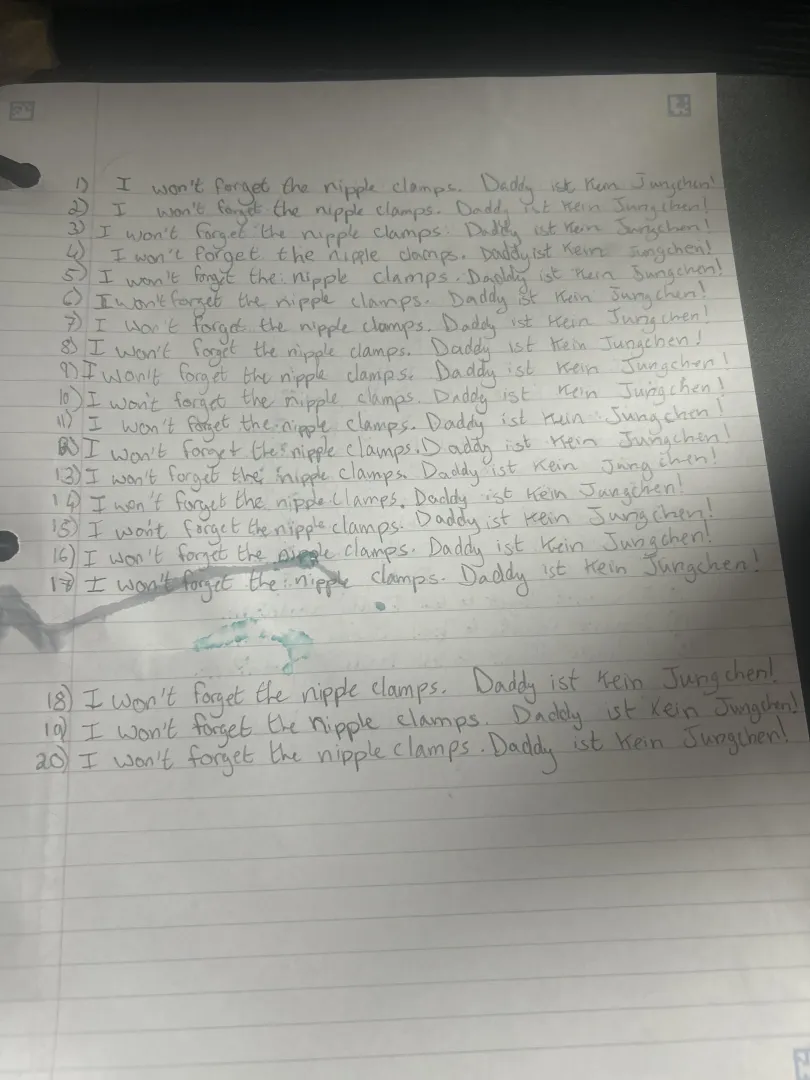 1) I won't forget the nipple clamps. Daddy ist kein Jungchen!
2) I won't forget the nipple clamps. Daddy ist kein Jungchen!
3) I won't forget the nipple clamps. Daddy ist kein Jungchen!
4) I won't forget the nipple clamps. Daddy ist kein Jungchen!
5) I won't forget the nipple clamps. Daddy ist kein Jungchen!
6) I won't forget the nipple clamps. Daddy ist kein Jungchen!
7) I won't forget the nipple clamps. Daddy ist kein Jungchen!
8) I won't forget the nipple clamps. Daddy ist kein Jungchen!
9) I won't forget the nipple clamps. Daddy ist kein Jungchen!
10) I won't forget the nipple clamps. Daddy ist kein Jungchen!
11) I won't forget the nipple clamps. Daddy ist kein Jungchen!
12) I won't forget the nipple clamps. Daddy ist kein Jungchen!
13) I won't forget the nipple clamps. Daddy ist kein Jungchen!
14) I won't forget the nipple clamps. Daddy ist kein Jungchen!
15) I won't forget the nipple clamps. Daddy ist kein Jungchen!
16) I won't forget the nipple clamps. Daddy ist kein Jungchen!
17) I won't forget the nipple clamps. Daddy ist kein Jungchen!
18) I won't forget the nipple clamps. Daddy ist kein Jungchen!
19) I won't forget the nipple clamps. Daddy ist kein Jungchen!
20) I won't forget the nipple clamps. Daddy ist kein Jungchen!